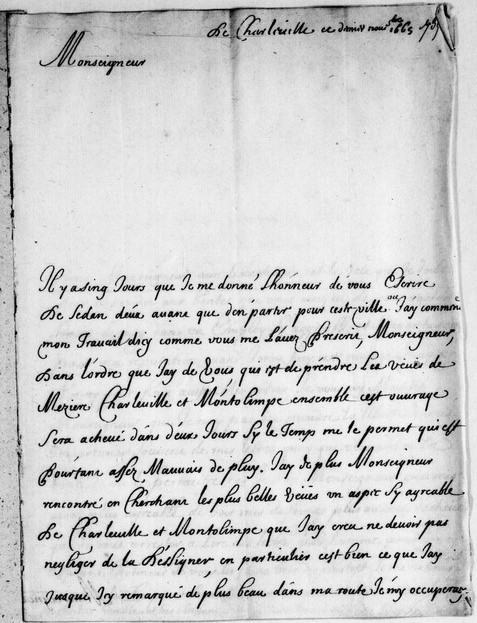 De Charleville ce dernier novbre 1665
Monseigneur
Il y a sinq Jours que Je me donné Lhonneur de vous Escrire
De Sedan deux avant que d'en partir pour ceste ville ou Jay commencé
mon Travail dicy comme vous me L'avez Prescrit, Monseigneur,
Dans l'ordre que Jay de Vous qui est de prendre Les veües de
Meziere Charleville et Montolimpe ensemble cest ouvrage
Sera achevé dans deux Jours Sy le Temps me le permet qui est
pourtant assez Mauvais de pluy. Jay de plus Monseigneur
rencontré en Cherchant les plus belles Veües un aspec Sy agreable
De Charleville et Montolimpe que Jay creu ne devoir pas
negliger de la Dessigner en particulier cest bien ce que Jay
Jusque Icy remarqué de plus beau dans ma route Je my occuperay